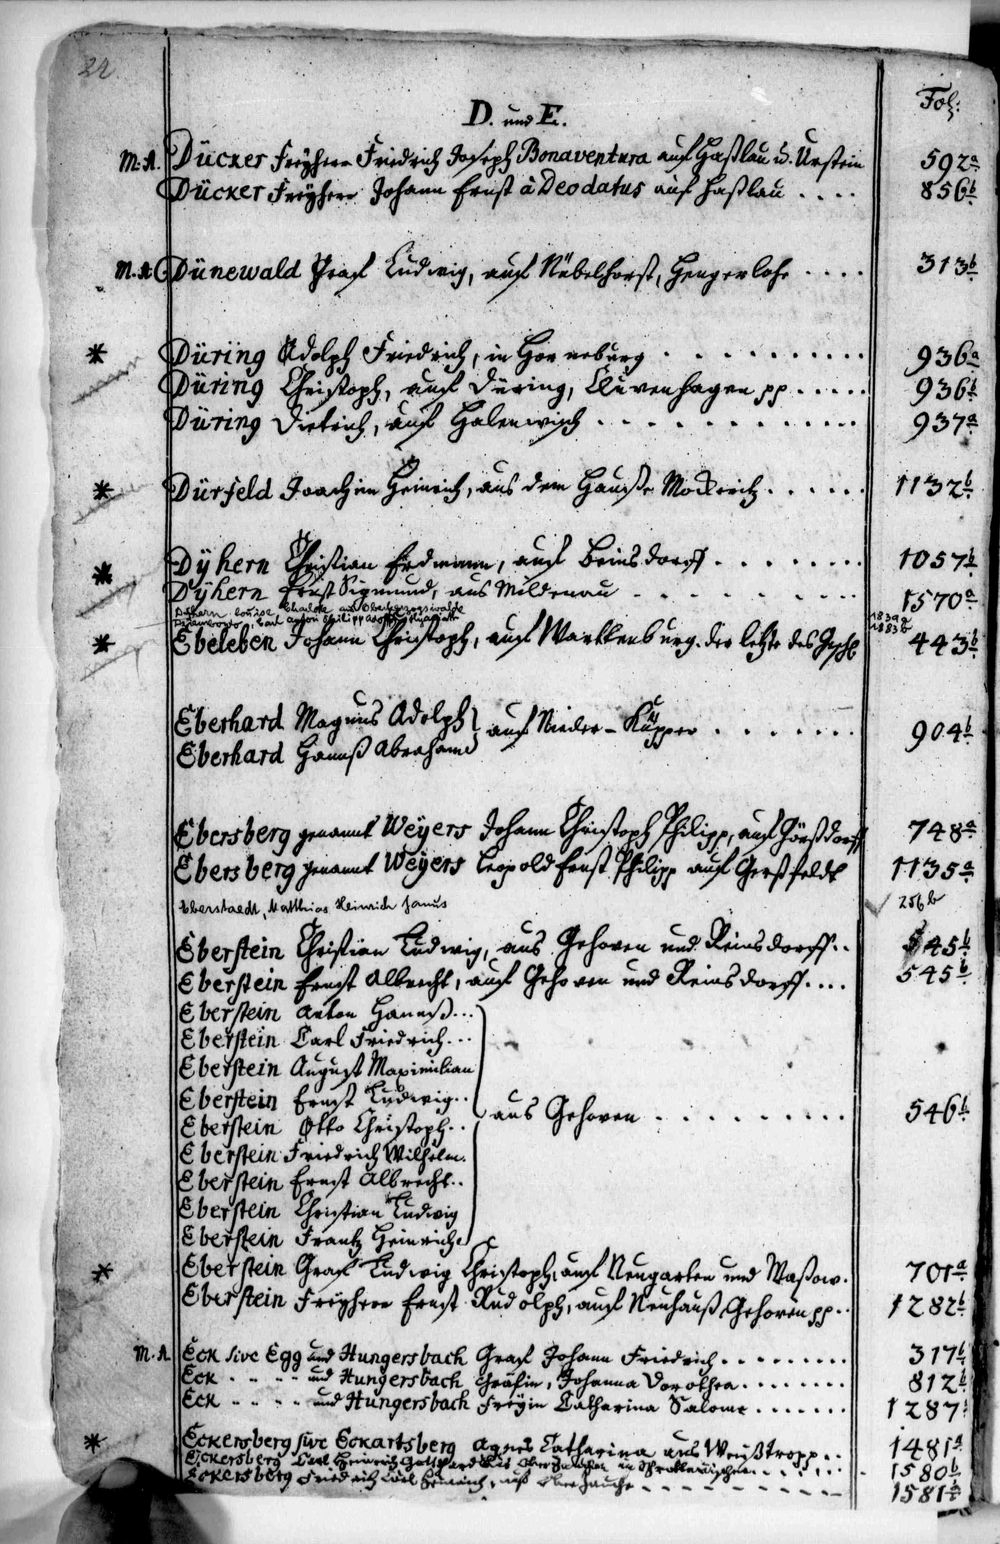 22
D. und E.
Fol:
M.A. Dücker Freÿherr Friedrich Joseph Bonaventura auf Haßlau u. Urstein 592a
Dücker Freÿherr Johann Ernst à Deodatus auf Haßlau .... 856b
M.A. Dünewald Graf Ludwig, auf Näbelhorst, Hengerlohe .... 313b
* Düring Adolph Friedrich, in Horneburg .......... 936a
Düring Christoph, auf Düring, Cluvenhagen pp ..... 936b
Düring Dietrich, auf Halenwisch ............ 937a
* Dürfeld Joachim Heinrich, aus dem Hauße Mockrich ...... 1132b
* Dÿhern Christian Erdmann, auf Beinsdorff ........ 1057b
Dÿhern Ernst Sigmund, aus Mildenau ........ 1570a
Dÿhern Louise Charlotte aus 1839a
Carl Anton Philipp Adolph 1883b
* Ebeleben Johann Christoph, auf Wartenburg. der letzte des Geschl 443b
Eberhard Magnus Adolph auf Nieder-Küpper ....... 904b
Eberhard Hannß Abraham
Ebersberg genannt Weÿers Johann Christoph Philipp, auf 748a
Ebersberg genannt Weÿers Leopold Ernst Philipp auf Gersfeldt 1135a
Eberstaedt, Matthias Heinrich Janus 256b
Eberstein Christian Ludwig, aus Gehoven und Reinsdorff .. 545b
Eberstein Ernst Albrecht, auf Gehoven und Reinsdorff .... 545b
Eberstein Anton Hannß ...
Eberstein Carl Friedrich ...
Eberstein August Maximilian
Eberstein Ernst Ludwig ..
aus Gehoven ......... 546b
Eberstein Otto Christoph ..
Eberstein Friedrich Wilhelm.
Eberstein Ernst Albrecht ..
Eberstein Christian Ludwig
Eberstein Frantz Heinrich
* Eberstein Graf Ludwig Christoph, auf Neugarten und Maßow. 701a
Eberstein Freÿherr Ernst Rudolph, auf Neuhauß Gehoven pp .. 1282b
M.A. Eck sive Egg und Hungersbach Graf Johann Friedrich ......... 317b
Eck .... und Hungersbach Gräfin, Johanna Dorothea ........ 812b
Eck .... und Hungersbach Freÿin Catharina Salome ....... 1287
* Eckersberg sive Eckartsberg Agnes Catharina aus Weißtropp ... 1481a
Eckersberg Carl Heinrich Gotthard 1580b
Eckersberg Friedrich Carl Heinrich, auf 1581a